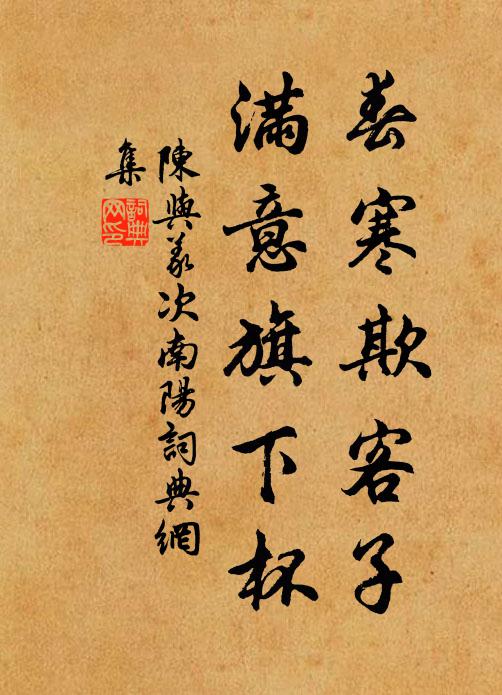 春寒欺客子
滿意旗下杯
陳與義次南陽詞典網
集
詞典
网印